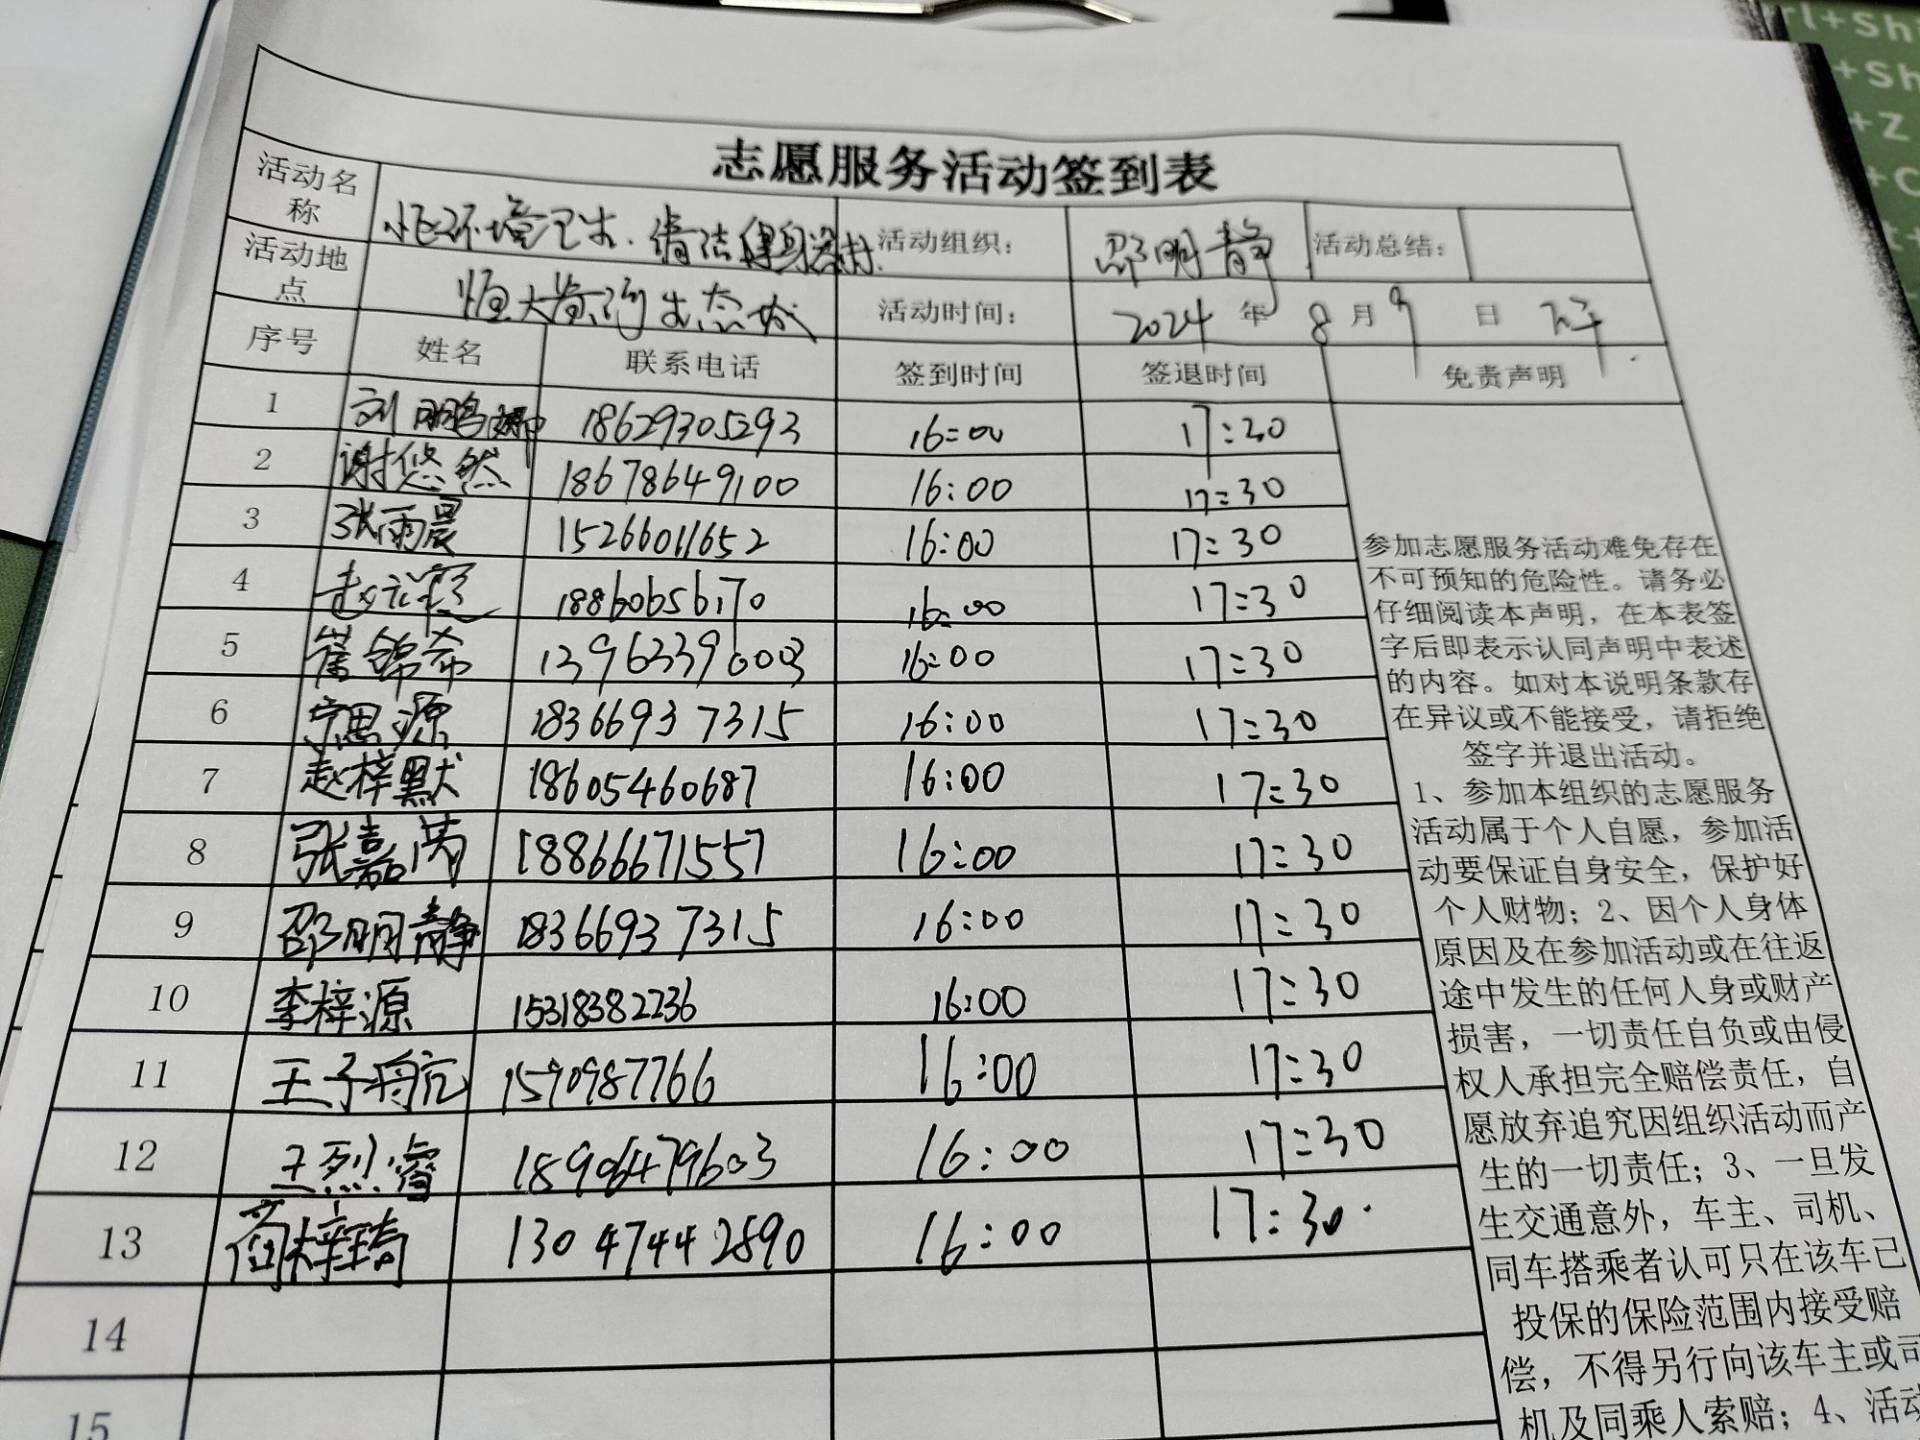 志愿服务活动签到表
活动名称 环境卫生、清洁健身器材 活动组织： 邵明静 活动总结：
活动地点 恒大黄河生态城 活动时间： 2024 年 8 月 9 日
序号 姓名 联系电话 签到时间 签退时间 免责声明
1 刘 18629305293 16:00 17:30
2 谢悠然 18678649100 16:00 17:30
3 张雨晨 15266011652 16:00 17:30
4 赵 18860656170 16:00 17:30
5 崔锦希 13963396003 16:00 17:30
6 宁思源 18366937315 16:00 17:30
7 赵梓默 18605460687 16:00 17:30
8 张嘉芮 18866671557 16:00 17:30
9 邵明静 18366937315 16:00 17:30
10 李梓源 15318382236 16:00 17:30
11 王子 1590987766 16:00 17:30
12 王烈睿 18906479603 16:00 17:30
13 梓琦 13047442890 16:00 17:30
14
15
参加志愿服务活动难免存在
不可预知的危险性。请务必
仔细阅读本声明，在本表签
字后即表示认同声明中表述
的内容。如对本说明条款存
在异议或不能接受，请拒绝
签字并退出活动。
1、参加本组织的志愿服务
活动属于个人自愿，参加活
动要保证自身安全，保护好
个人财物；2、因个人身体
原因及在参加活动或在往返
途中发生的任何人身或财产
损害，一切责任自负或由侵
权人承担完全赔偿责任，自
愿放弃追究因组织活动而产
生的一切责任；3、一旦发
生交通意外，车主、司机、
同车搭乘者认可只在该车已
投保的保险范围内接受赔
偿，不得另行向该车主或司
机及同乘人索赔；4、活动